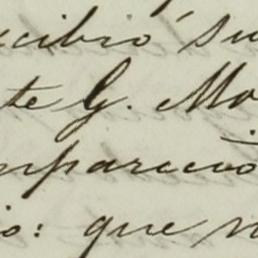 cibió su
te G. Mo
mpareció
io: que n